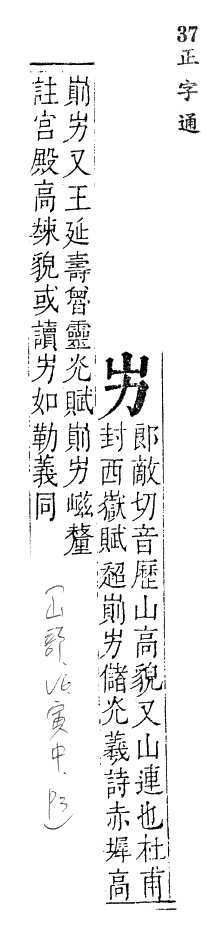 37
正字通
屴
郎敵切音歷山高貌又山連也杜甫
封西嶽賦超崱屴儲灮羲詩赤墀高
崱屴又王延壽魯靈灮賦崱屴嵫釐
註宮殿高竦貌或讀屴如勒義同
(山部, 寅中. P3)